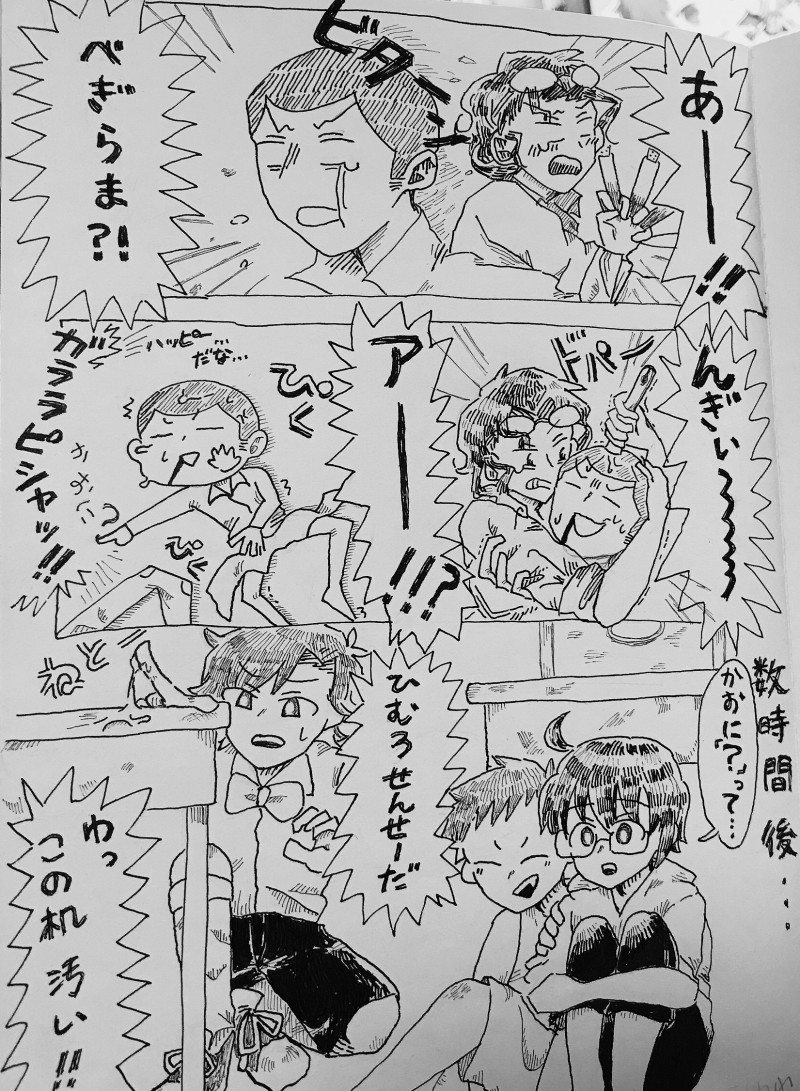 あー!!
ビターン
べぎらま?!
んぎぃ〜〜〜
ドパン
アー!!?
ぴく
ハッピー
だな…
ぴく
かおに?
ガララピシャッ!!
数時間後…
かおに「?」って…
ひむろせんせーだ
ねと
わっ
この机汚い!!